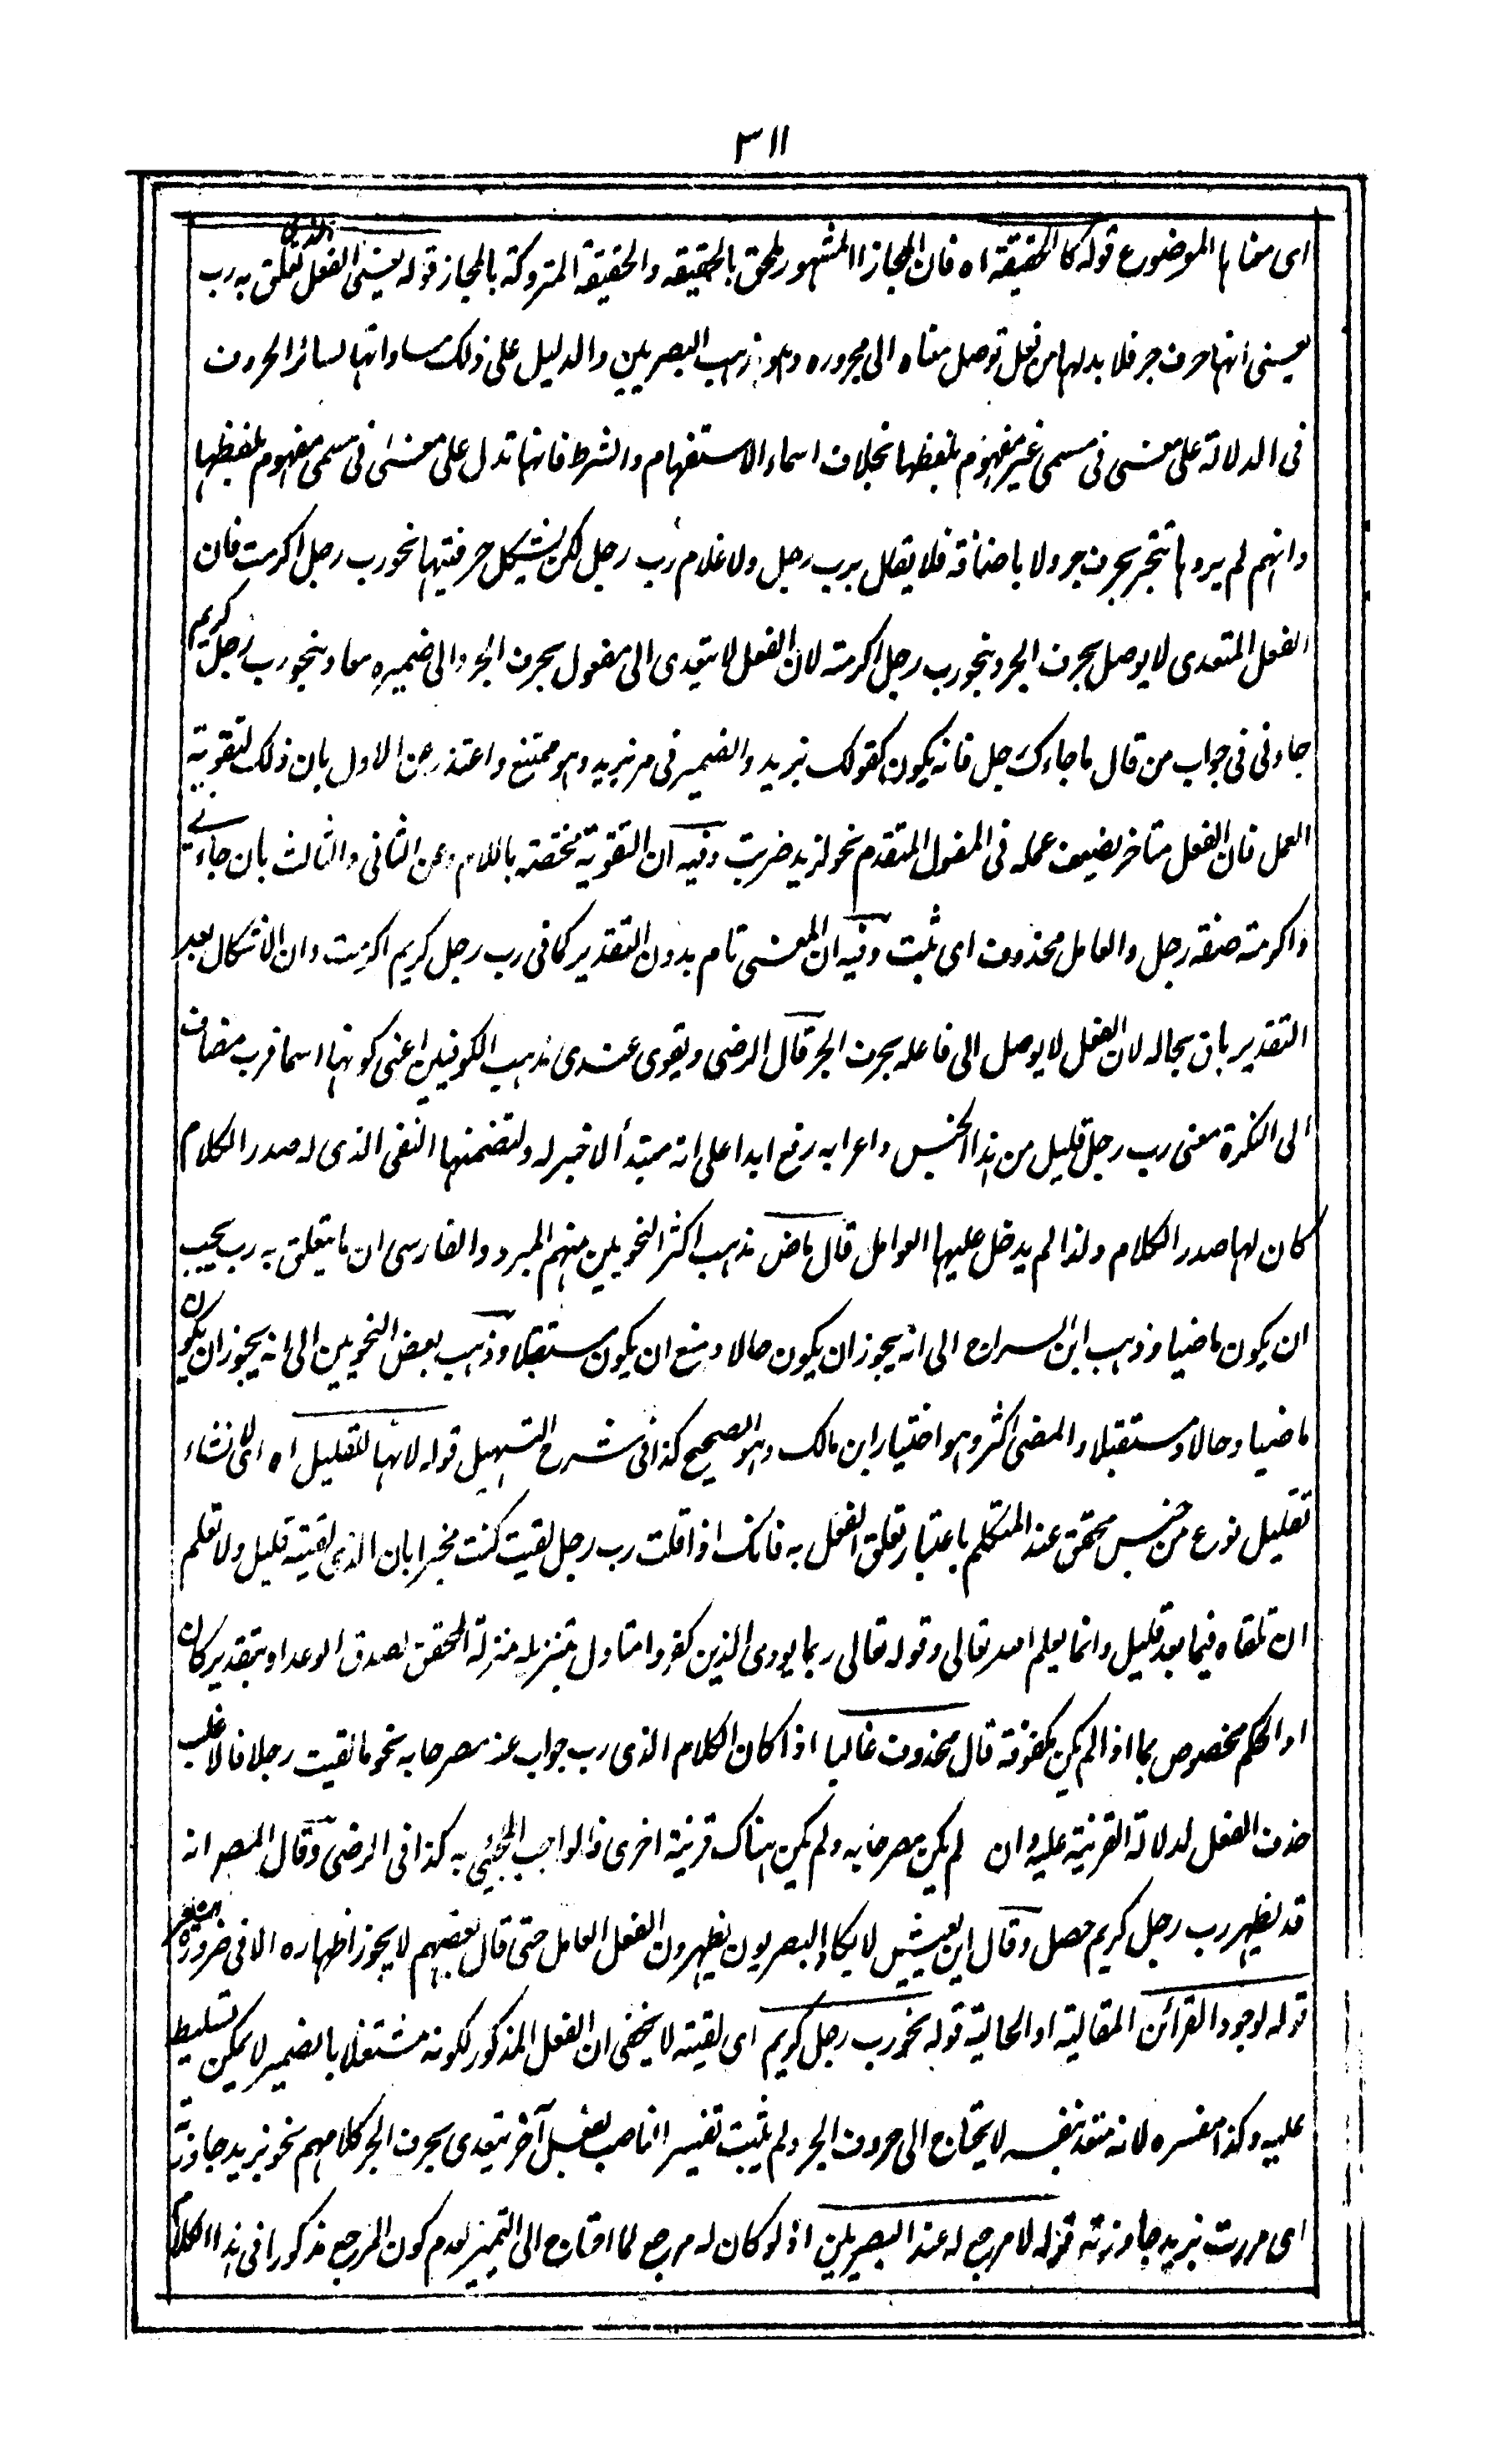 ٣١١
اى معناها الموضوع قوله كالحقيقة اه فان المجاز المشهور ملحق بالحقيقه والحقيقة المتروكة بالمجاز قوله يعنى الفعل الذى تعلق به رب
يعنى انها حرف جر فلا بد لها من فعل توصل معناه الى مجروره وهو مذهب البصريين والدليل على ذلك مساواتها لسائر الحروف
فى الدلالة على معنى فى مسمى غير مفهوم بلفظها بخلاف اسماء الاستفهام والشرط فانها تدل على معنى فى مسمى مفهوم بلفظها
وانهم لم يروها تنجر بحرف جر ولا باضافة فلا يقال برب رجل ولا غلام رب رجل لكن يشكل حرفيتها نحو رب رجل اكرمت فان
الفعل المتعدى لا يوصل بحرف الجر وبنحو رب رجل اكرمته لان الفعل لا يتعدى الى مفعول بحرف الجر والى ضميره معا وبنحو رب رجل كريم
جاءنى فى جواب من قال ما جاءك رجل فانه يكون كقولك بزيد والضمير فى مر بزيد وهو ممتنع واعتذر عن الاول بان ذلك لتقوية
العمل فان الفعل متاخر يضعف عمله فى المفعول المتقدم نحو لزيد ضربت وفيه ان التقوية مختصة باللام وعن الثانى والثالث بان جاءنى
واكرمته صفة رجل والعامل محذوف اى ثبت وفيه ان المعنى تام بدون التقدير كما فى رب رجل كريم اكرمت وان الاشكال بعد
التقدير باق بحاله لان الفعل لا يوصل الى فاعله بحرف الجر قال الرضى ويقوى عندى مذهب الكوفيين اعنى كونها اسما فرب مضاف
الى النكرة معنى رب رجل قليل من هذا الجنس واعرابه رفع ابدا على انه مبتدأ لا خبر له ولتضمنها النفى الذى له صدر الكلام
كان لها صدر الكلام ولذا لم يدخل عليها العوامل قال ماض مذهب اكثر النحويين منهم المبرد والفارسى ان ما يتعلق به رب يجب
ان يكون ماضيا وذهب ابن السراج الى انه يجوز ان يكون حالا ومنع ان يكون مستقبلا وذهب بعض النحويين الى انه يجوز ان يكون
ماضيا وحالا ومستقبلا والمضى اكثر وهو اختيار ابن مالك وهو الصحيح كذا فى شرح التسهيل قوله لانها للتقليل اه اى لانشاء
تقليل نوع من جنس محقق عند المتكلم باعتبار تعلق الفعل به فانك اذا قلت رب رجل لقيت كنت مخبرا بان الذى لقيته قليل ولا تعلم
ان تلقاه فيما بعد قليل وانما يعلم الله تعالى وقوله تعالى ربما يود الذين كفروا متاول بتنزيله منزلة المحقق لصدق الوعد او بتقدير كان
او الحكم مخصوص بما اذا لم يكن مكفوفة قال محذوف غالبا اذا كان الكلام الذى رب جواب عنه مصرحا به نحو ما لقيت رجلا فالاغلب
حذف الفعل لدلالة القرينة عليه وان لم يكن مصرحا به ولم يكن هناك قرينة اخرى فالواجب المجئ به كذا فى الرضى وقال المصر انه
قد يظهر رب رجل كريم حصل وقال ابن يعيش لا يكاد البصريون يظهرون الفعل العامل حتى قال بعضهم لا يجوز اظهاره الا فى ضرورة الشعر
قوله لوجود القرائن المقالية او الحالية قوله نحو رب رجل كريم اى لقيته لا يخفى ان الفعل المذكور لكونه مشتغلا بالضمير لا يمكن تسليط
عليه وكذا مفسره لانه متعد بنفسه لا يحتاج الى حروف الجر ولم يثبت تفسير الناصب لفعل آخر يتعدى بحرف الجر كلامهم نحو بزيد جاوزته
اى مررت بزيد جاوزته قوله لا مرجع له عند البصريين اذ لو كان له مرجع لما احتاج الى التميز لعدم كون المرجع مذكورا فى هذا الكلام